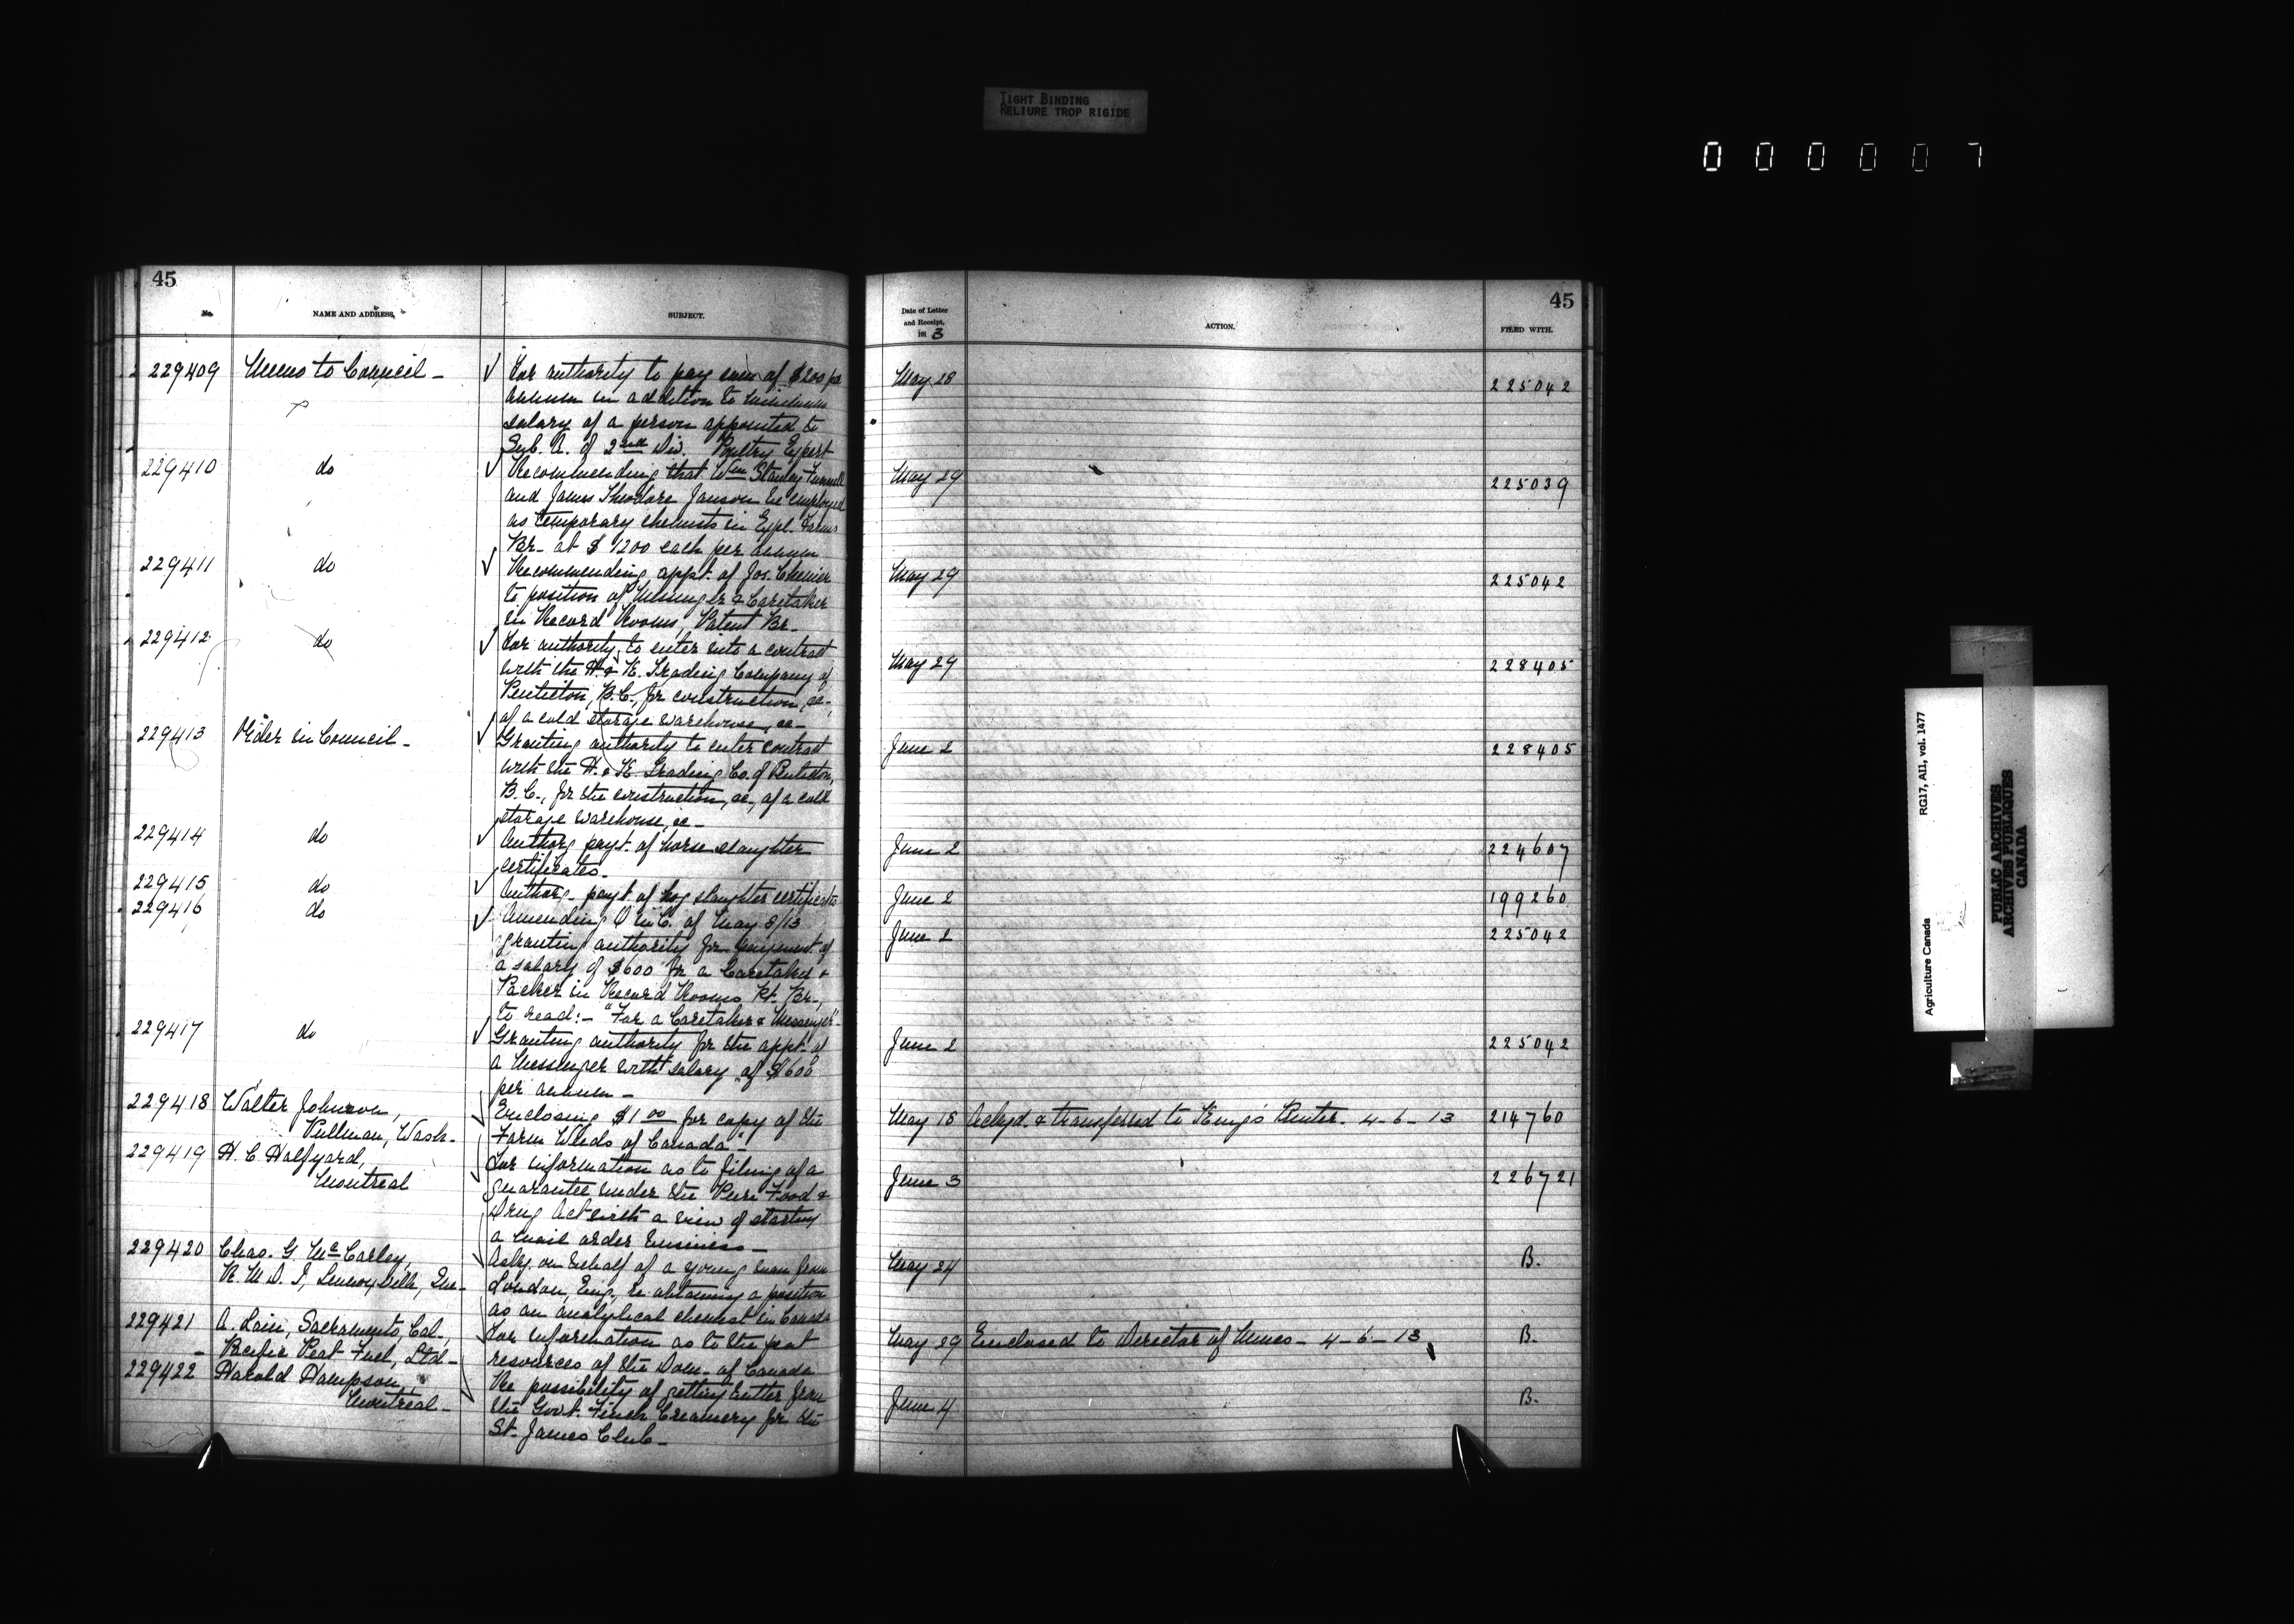 TIGHT BINDING
RELIURE TROP RIGIDE
0 0 0 0 0 7
45
No. NAME AND ADDRESS, SUBJECT.
229409 Memo to Council - For authority to pay sum of $200 per
annum in addition to minimum
salary of a person appointed to
Sub. A. of 2nd Div. Poultry Expert
229410 do Recommending that Wm Stanley
and James Theodore Janson be employed
as temporary chemists in Expl. Farms
Br. at $1200 each per annum
229411 do Recommending appt. of Jos. Chenier
to position of Messenger & Caretaker
in Record Rooms, Patent Br.
229412 do For authority to enter into a contract
with the H. & K. Trading Company of
Penticton, B.C., for construction, &c.,
of a cold storage warehouse, &c-
229413 Order in Council - Granting authority to enter contract
with the H. & K. Trading Co. of Penticton,
B.C., for the construction, &c, of a cold
storage warehouse, &c-
229414 do Authorg payt. of horse slaughter
certificates.
229415 do Authorg. payt. of hog slaughter certificates
229416 do Amending O in C. of May 8/13
granting authority for payment of
a salary of $600 for a Caretaker &
Packer in Record Rooms Pt. Br.,
to read:- "For a Caretaker & Messenger"-
229417 do Granting authority for the appt. of
a Messenger with salary of $600
per annum -
229418 Walter Johnson, Enclosing $1.00 for copy of the
Pullman, Wash. Farm Weeds of Canada"-
229419 H. C. Halfyard, For information as to filing of a
Montreal guarantee under the Pure Food &
Drug Act with a view of starting
a mail order business -
229420 Chas. G. McCarley, Askg. on behalf of a young man from
R.M.D. 1, Lennoxville, Que- London, Eng., re obtaining a position
as an analytical chemist in Canada
229421 A. Lain, Sacramento, Cal., For information as to the peat
Pacific Peat Fuel, Ltd- resources of the Dom. of Canada
229422 Harold Hampson, Re possibility of getting butter from
Montreal - the Govt. Finch Creamery for the
St. James Club-
45
Date of Letter and Receipt, 1913 ACTION. FILED WITH.
May 28 225042
May 29 225039
May 29 225042
May 29 228405
June 2 228405
June 2 224607
June 2 199260
June 2 225042
June 2 225042
May 18 Ackgd. & transferred to King's Printer. 4-6-13 214760
June 3 226721
May 24 B.
May 29 Enclosed to Director of Mines - 4-6-13 B.
June 4 B.
Agriculture Canada RG17, AII, vol. 1477
PUBLIC ARCHIVES
ARCHIVES PUBLIQUES
CANADA